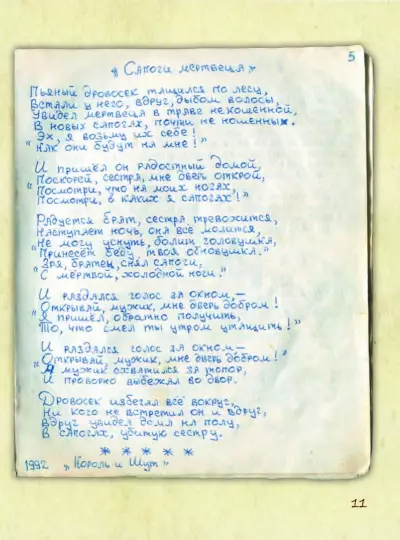 5
„Сапоги мертвеца"
Пьяный дровосек тащился по лесу,
Встали у него, вдруг, дыбом волосы,
Увидел мертвеца в траве некошенной,
В новых сапогах, почти не ношенных.
"Эх, я возьму их себе!
Как они будут на мне!"
И пришёл он радостный домой,
"Поскорей, сестра, мне дверь открой,
Посмотри, что на моих ногах,
Посмотри, в каких я сапогах!"
Радуется брат, сестра тревожится,
Наступает ночь, она всё молится,
"Не могу уснуть, болит головушка,
Принесёт беду твоя обновушка."
"Зря, братец, снял сапоги,
С мёртвой, холодной ноги."
И раздался голос за окном, –
"Открывай, мужик, мне дверь добром!
Я пришёл, обратно получить,
То, что смел ты утром утащить!"
И раздался голос за окном –
"Открывай, мужик, мне дверь добром!"
А мужик схватился за топор,
И проворно выбежал во двор.
Дровосек избегал всё вокруг,
Ни кого не встретил он и вдруг,
Вдруг увидел дома на полу,
В сапогах, убитую сестру.
* * * * *
1992 „Король и Шут"
11